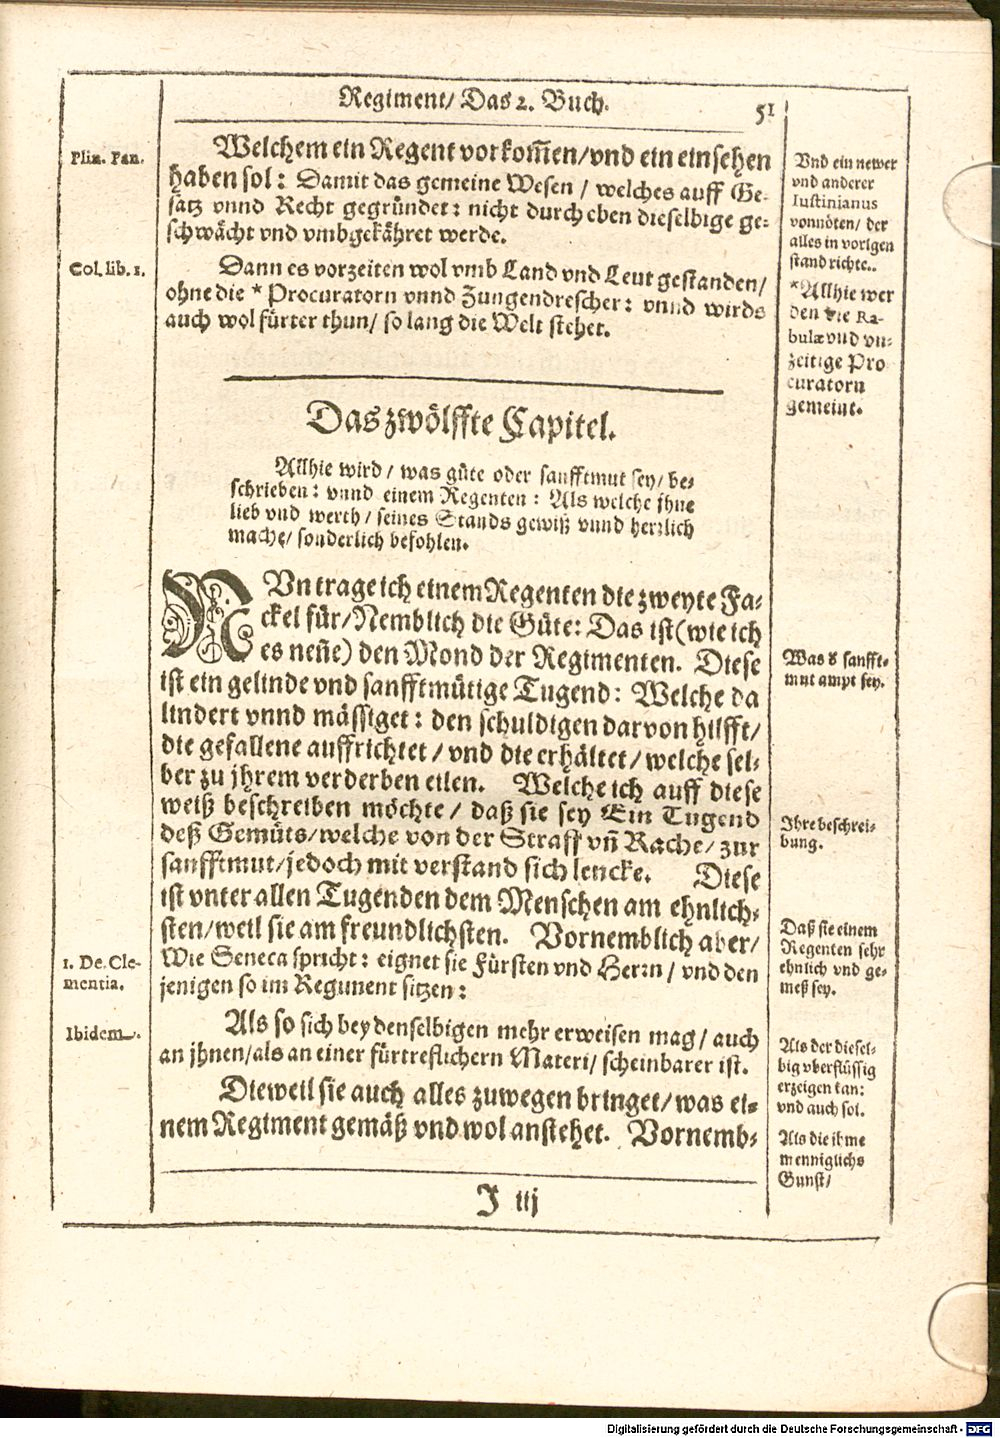 Regiment/ Das 2. Buch. 51
Plin. Pan.
Welchem ein Regent vorkom̃en/vnd ein einsehen
haben sol: Damit das gemeine Wesen / welches auff Ge-
satz vnnd Recht gegründet: nicht durch eben dieselbige ge-
schwächt vnd vmbgekähret werde.
Vnd ein newer
vnd anderer
Iustinianus
vonnöten/ der
alles in vorigen
stand richte..
Col. lib. 1.
Dann es vorzeiten wol vmb Land vnd Leut gestanden/
ohne die * Procuratorn vnnd Zungendrescher: vnnd wirds
auch wol fürter thun/ so lang die Welt stehet.
*Allhie wer
den die Ra-
bulæ vnd vn-
zeitige Pro
curatorn
gemeint.
Das zwölffte Capitel.
Allhie wird / was güte oder sanfftmut sey/ be-
schrieben: vnnd einem Regenten: Als welche jhne
lieb vnd werth/ seines Stands gewiß vnnd hertzlich
mache/ sonderlich befohlen.
NVn trage ich einem Regenten die zweyte Fa-
ckel für/Nemblich die Güte: Das ist (wie ich
es neñe) den Mond der Regimenten. Diese
ist ein gelinde vnd sanfftmütige Tugend: Welche da
lindert vnnd mässiget: den schuldigen darvon hilfft/
die gefallene auffrichtet / vnd die erhältet/ welche sel-
ber zu jhrem verderben eilen. Welche ich auff diese
weiß beschreiben möchte / daß sie sey Ein Tugend
deß Gemüts/welche von der Straff vñ Rache/ zur
sanfftmut/jedoch mit verstand sich lencke. Diese
ist vnter allen Tugenden dem Menschen am ehnlich-
sten/weil sie am freundlichsten. Vornemblich aber/
Wie Seneca spricht: eignet sie Fürsten vnd Herrn / vnd den
jenigen so im Regiment sitzen:
Was d sanfft-
mut ampt sey.
Ihre beschrei-
bung.
Daß sie einem
Regenten sehr
ehnlich vnd ge-
meß sey.
1. De. Cle-
mentia.
Ibidem.
Als so sich bey denselbigen mehr erweisen mag/ auch
an jhnen/als an einer fürtreflichern Materi/ scheinbarer ist.
Als der diesel-
big vberflüssig
erzeigen kan:
vnd auch sol.
Dieweil sie auch alles zuwegen bringet/was ei-
nem Regiment gemäß vnd wol anstehet. Vornemb-
Als die ihme
menniglichs
Gunst/
J iij
Digitalisierung gefördert durch die Deutsche Forschungsgemeinschaft - DFG